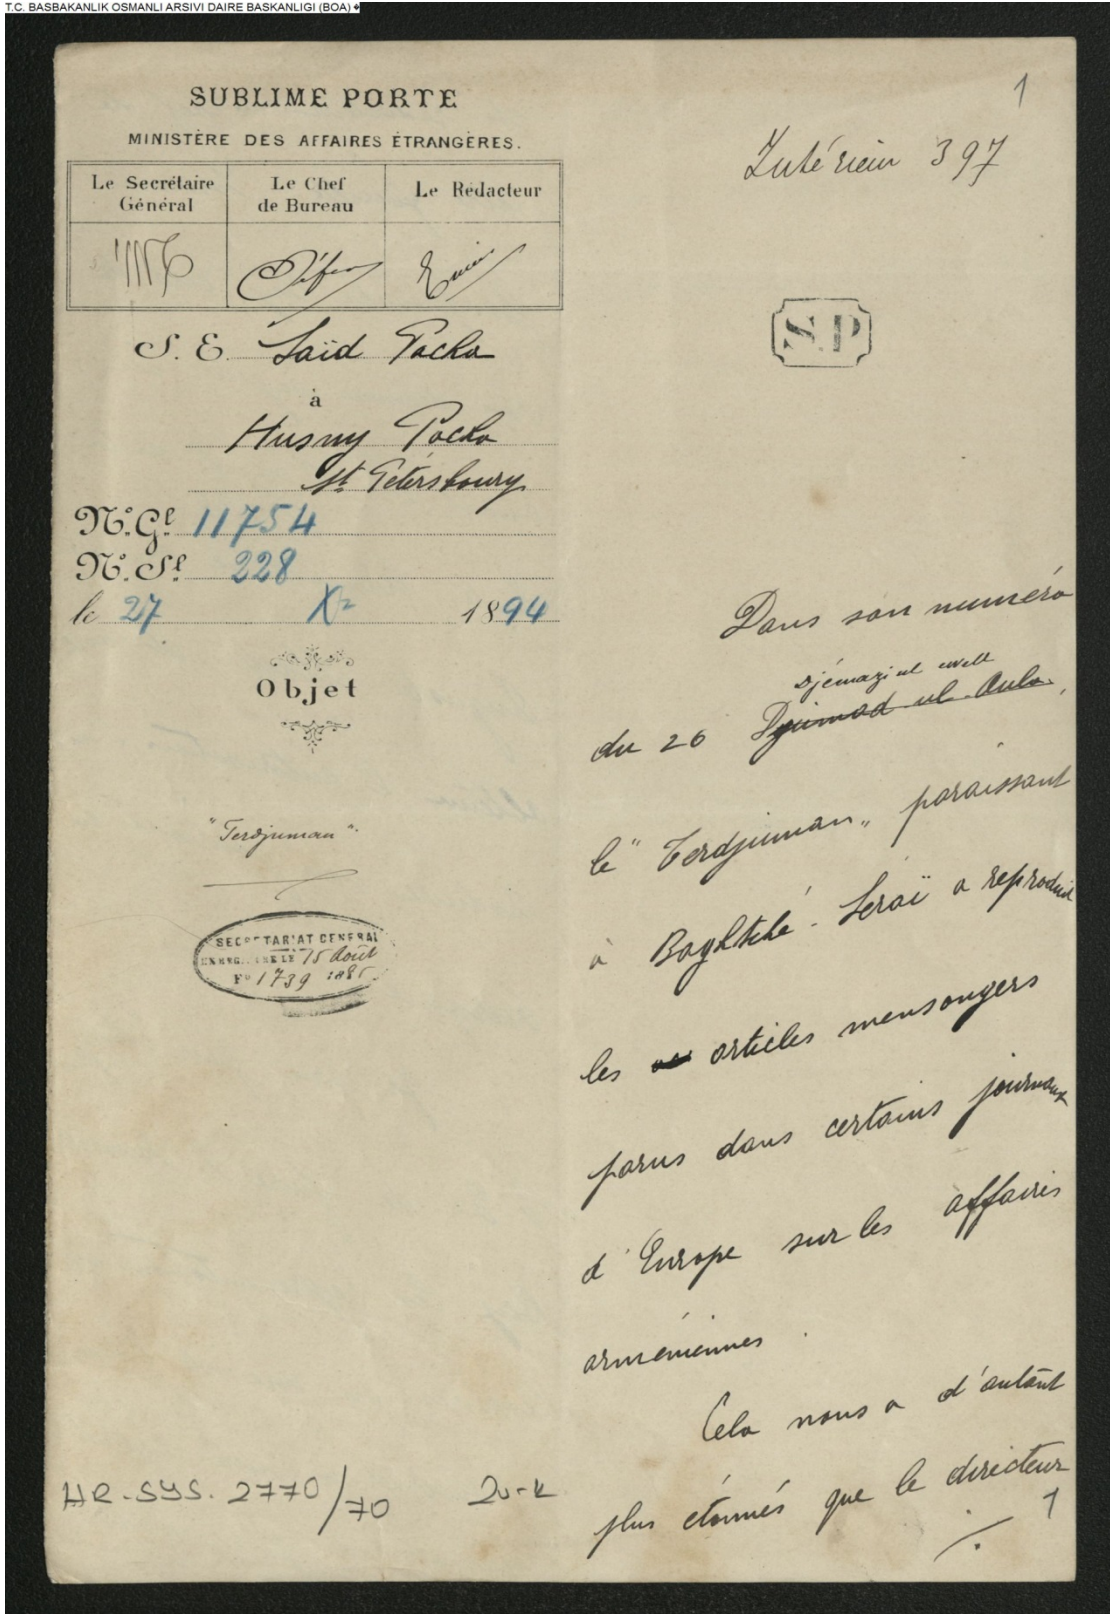 T.C. BASBAKANLIK OSMANLI ARSIVI DAIRE BASKANLIGI (BOA)
SUBLIME PORTE
MINISTÈRE DES AFFAIRES ÉTRANGÈRES.
Le Secrétaire Général
Le Chef de Bureau
Le Rédacteur
S. E. Saïd Pacha
à
Husny Pacha
St Pétersbourg
No. Gl. 11754
No. Sl. 228
le 27 Xe 1894
Objet
"Terdjuman".
SECRETARIAT GENERAL
ENREG... LE 15 Août
No 1739 188
HR-SYS. 2770/70
1
Intérieur 397
S.P
Dans son numéro
djémazi ul ewell
du 26 Djuimad ul-Aula,
le "Terdjuman" paraissant
à Baghtché-Seraï a reproduit
les articles mensongers
parus dans certains journaux
d'Europe sur les affaires
arméniennes.
Cela nous a d'autant
plus étonnés que le directeur
./.
1